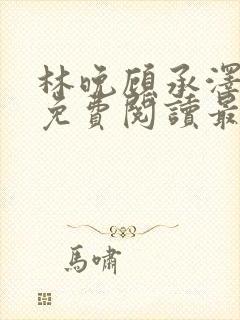 林晚顾承澤
免費閱讀最
馬嘯